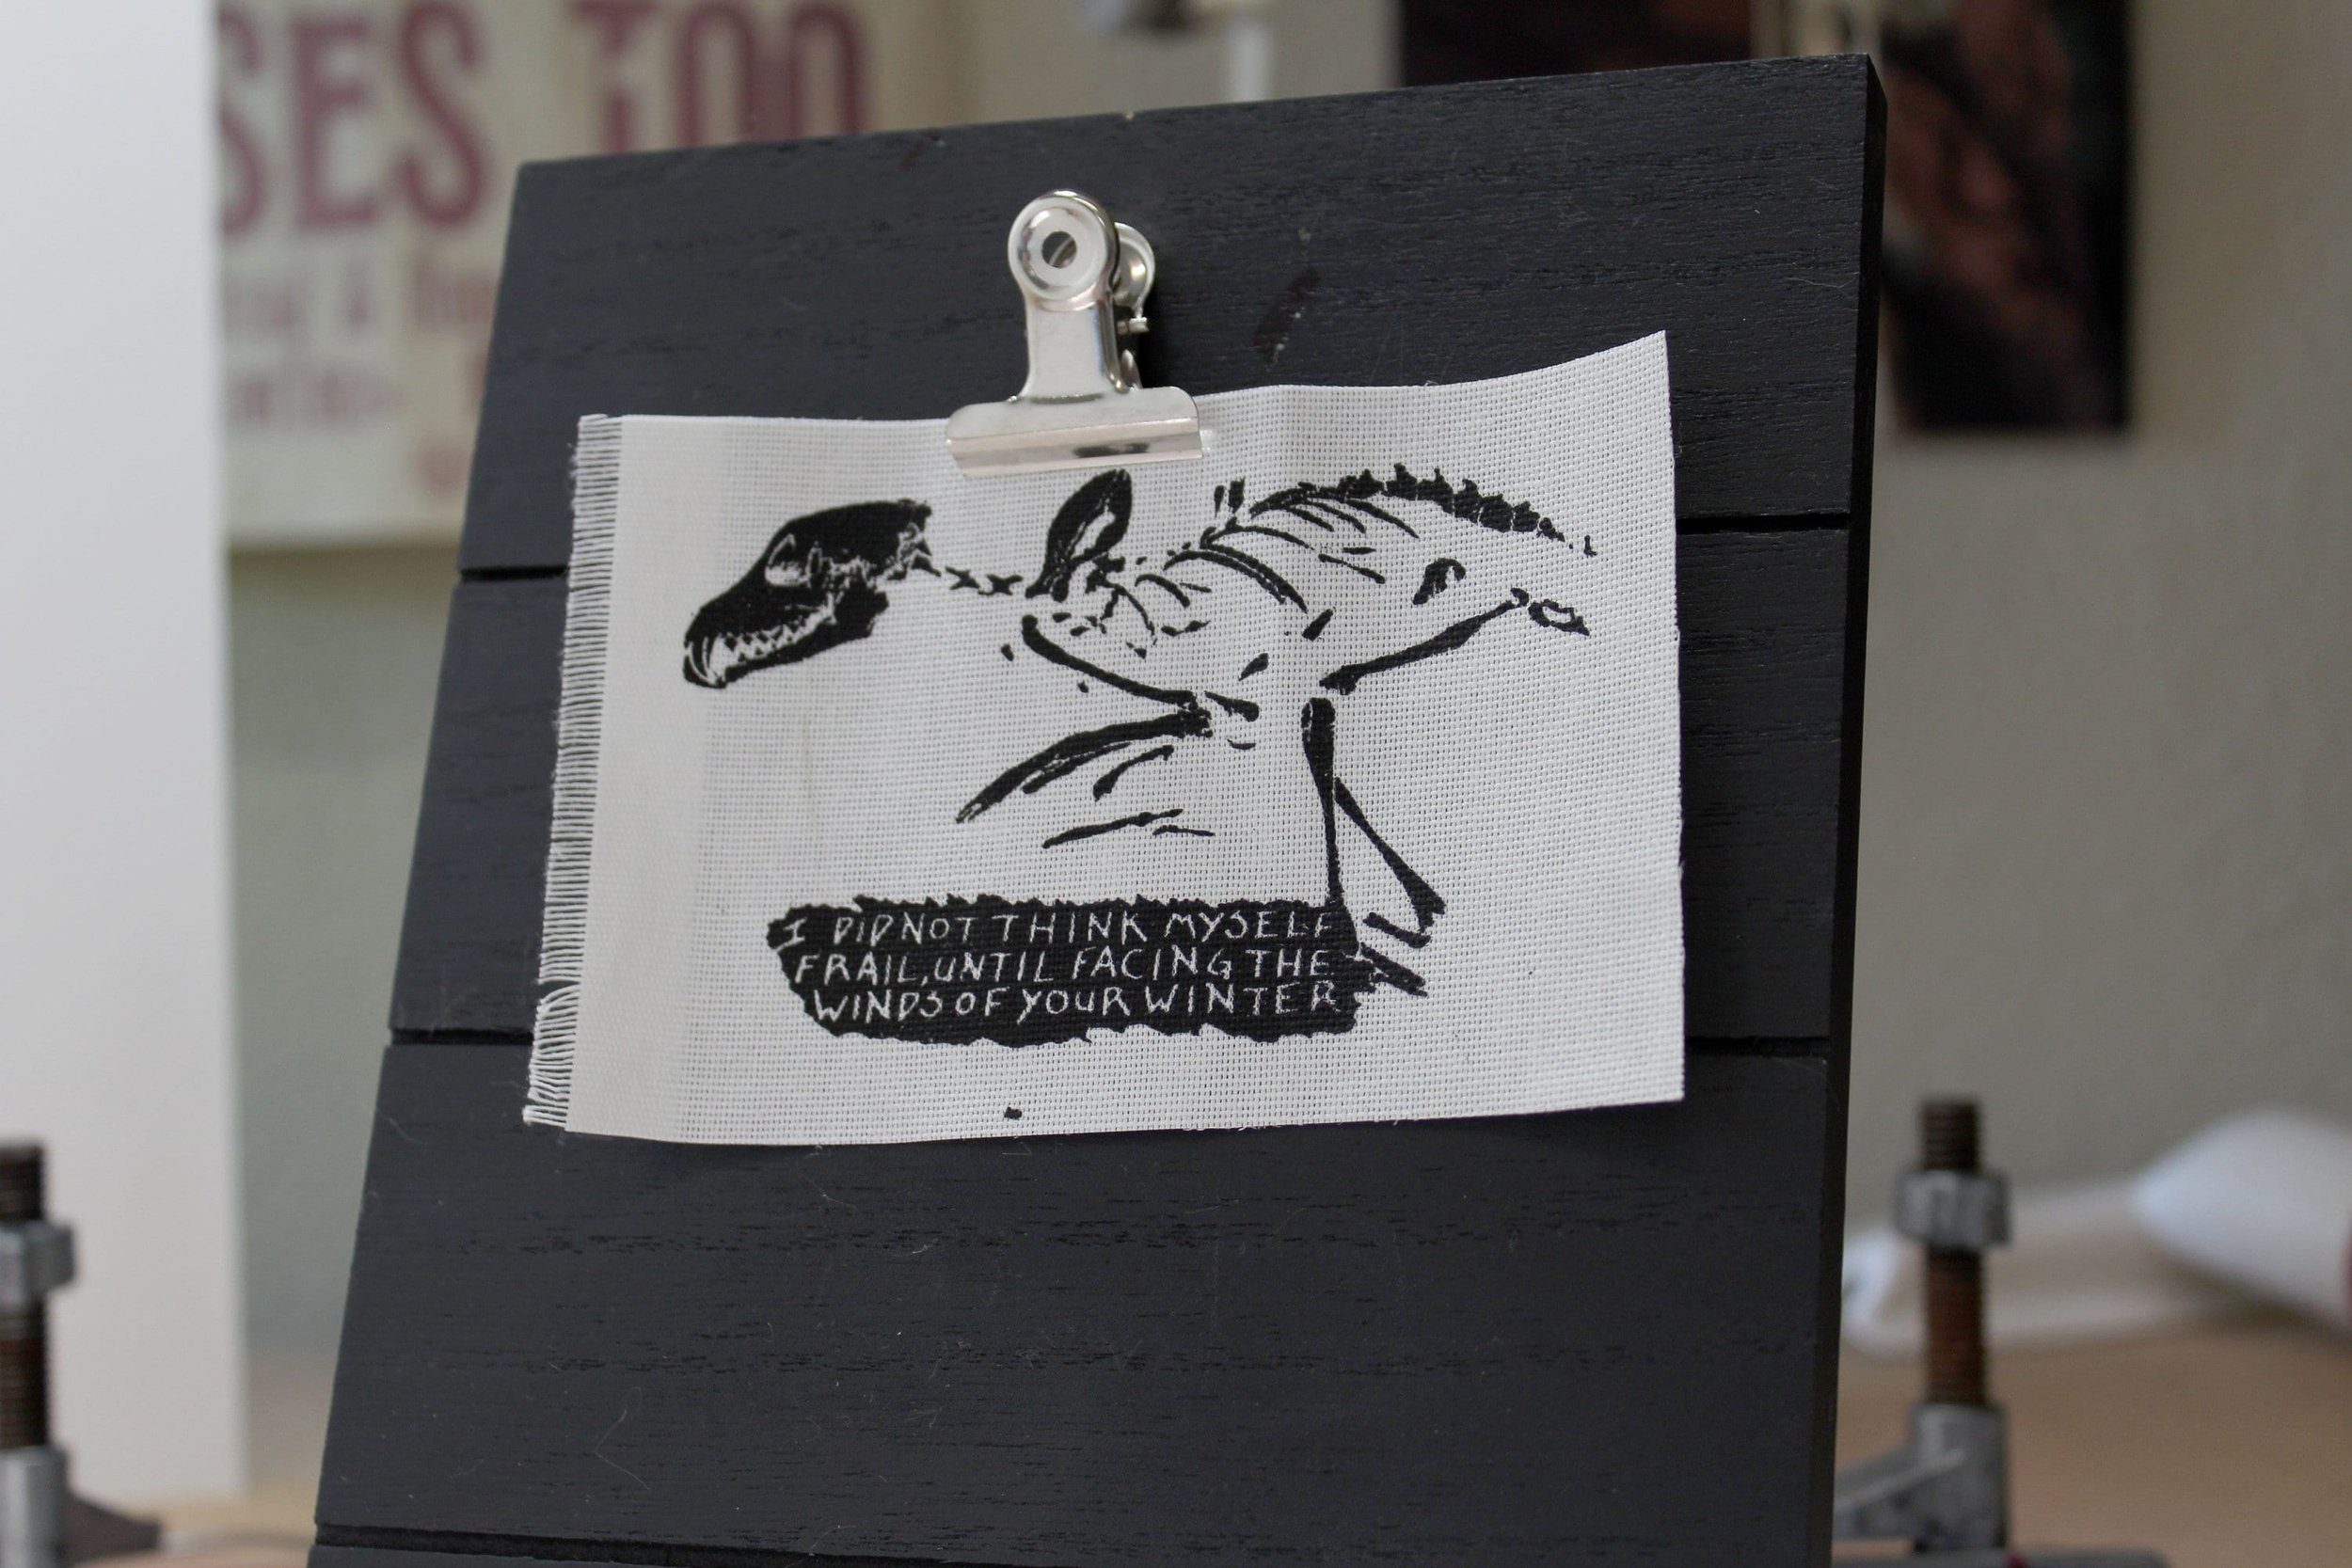 SES TOO
I DID NOT THINK MYSELF
FRAIL, UNTIL FACING THE
WINDS OF YOUR WINTER